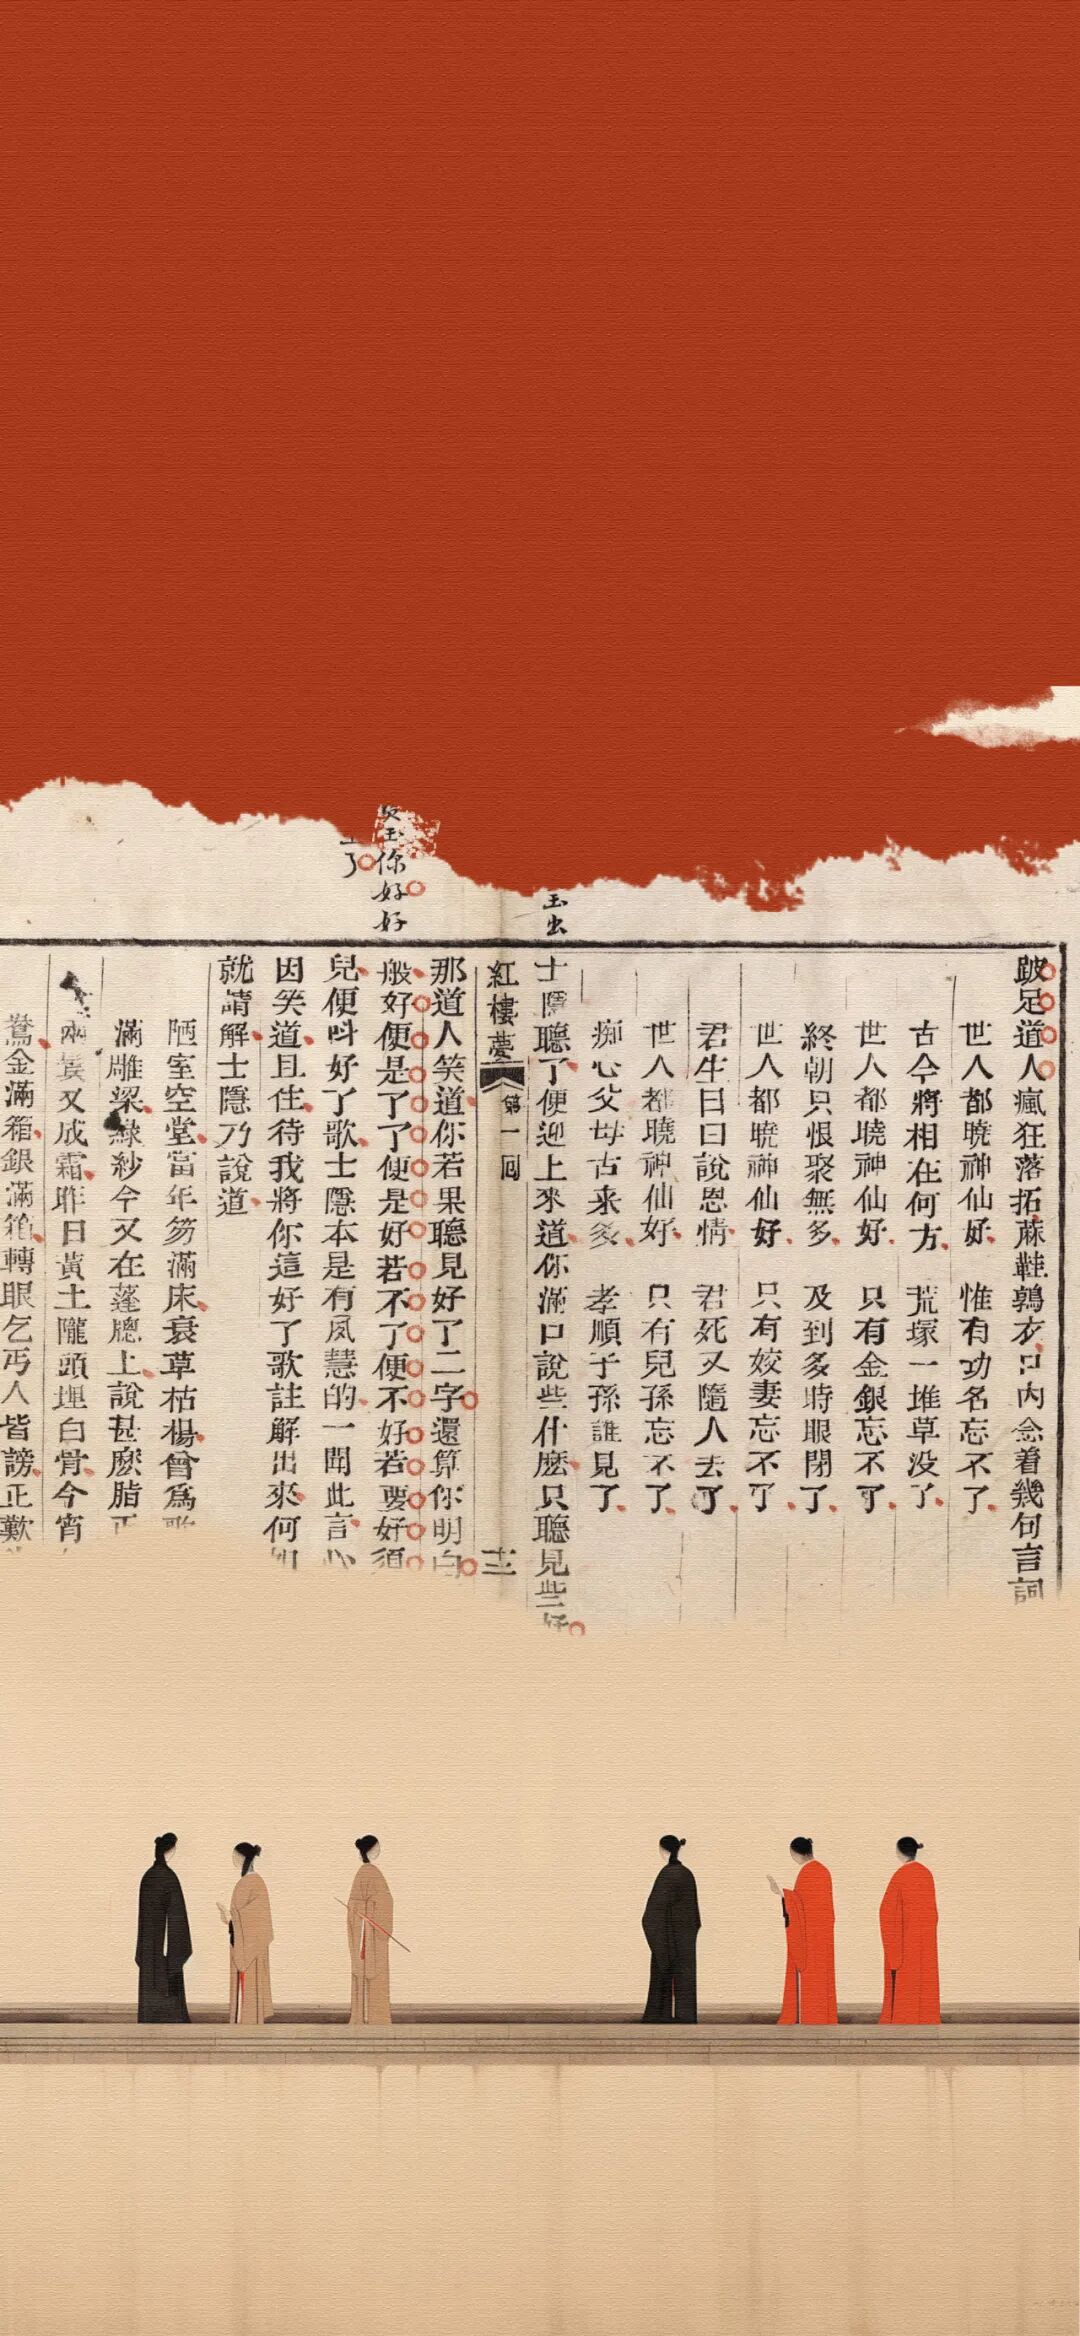 跛足道人瘋狂落拓蔴鞋鶉衣口内念着幾句言詞
世人都曉神仙好 惟有功名忘不了
古今將相在何方 荒塚一堆草没了
世人都曉神仙好 只有金銀忘不了
終朝只恨聚無多 及到多時眼閉了
世人都曉神仙好 只有姣妻忘不了
君生日日說恩情 君死又隨人去了
世人都曉神仙好 只有兒孫忘不了
痴心父母古来多 孝順子孫誰見了
玉出
士隱聽了便迎上來道你滿口說些什麼只聽見些好
紅樓夢 第一囘 十二
那道人笑道你若果聽見好了二字還算你明白
玉你好好
般好便是了了便是好若不了便不好若要好須
了
兒便呌好了歌士隱本是有夙慧的一聞此言心
因笑道且住待我將你這好了歌註解出來何如
就請解士隱乃說道
陋室空堂當年笏滿床衰草枯楊曾爲歌
滿雕梁綠紗今又在蓬牕上說甚麽脂正
兩鬓又成霜昨日黃土隴頭埋白骨今宵
鴦金滿箱銀滿箱轉眼乞丐人皆謗正歎